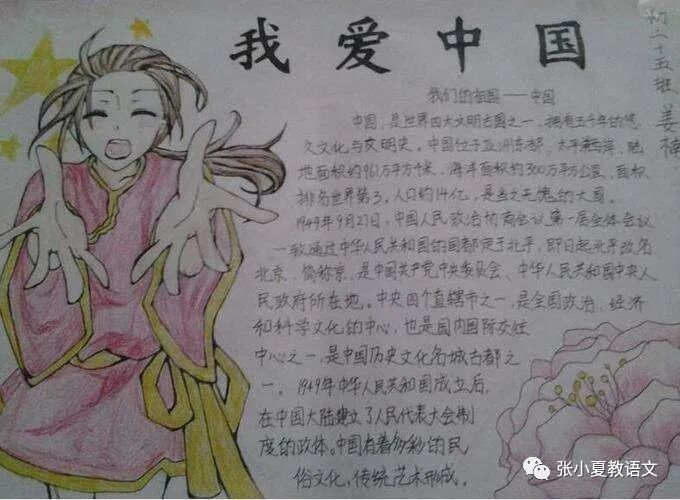 我爱中国
初二十五班 姜楠
我们的祖国——中国
中国,是世界四大文明古国之一,拥有五千年的悠
久文化与文明史。中国位于亚洲东部,太平洋,陆
地面积约961万平方千米,海洋面积约300万平方公里,面积
排名世界第3。人口约14亿,是当之无愧的大国。
1949年9月27日,中国人民政治协商会议第一届全体会议
一致通过中华人民共和国的国都定于北平,即日起北平改名
北京,简称京,是中国共产党中央委员会、中华人民共和国中央人
民政府所在地。中央四个直辖市之一,是全国政治、经济
和科学文化的中心,也是国内国际交往
中心之一,是中国历史文化名城古都之
一。1949年中华人民共和国成立后,
在中国大陆建立了人民代表大会制
度的政体。中国有着多彩的民
俗文化,传统艺术形成。
张小夏教语文